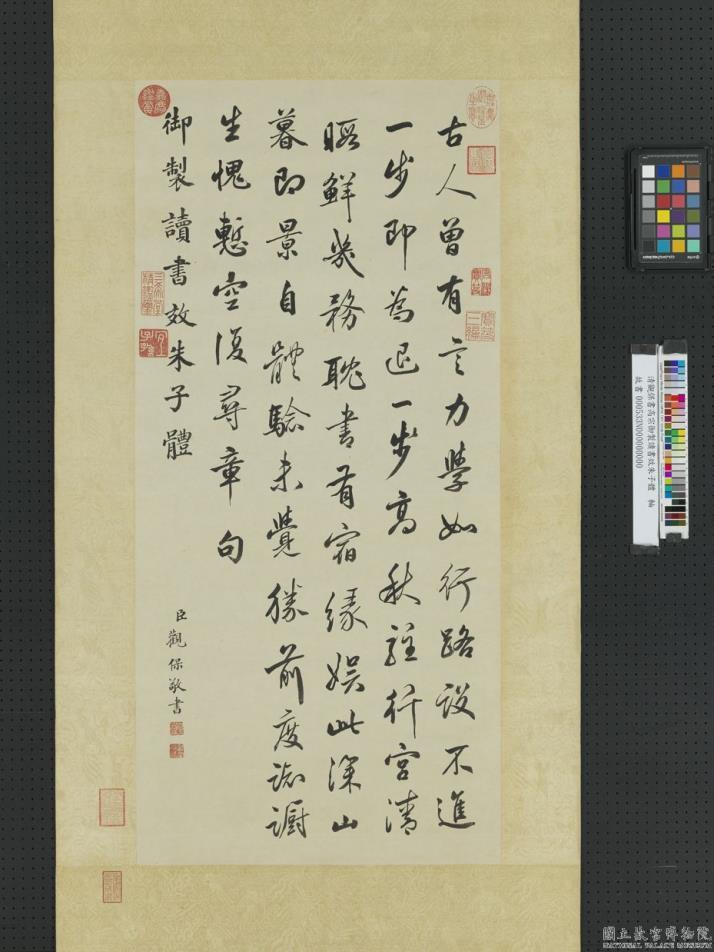 古人曾有言力學如行路設不進
一步即為退一步高秋駐行宮清
暇鮮幾務耽書有宿緣娛此深山
暮即景自體驗未覺勝前度詼謿
生愧慙空復尋章句
御製讀書效朱子體
臣觀保敬書
清觀保書高宗御製讀書效朱子體 軸
故書 000533N000000000
國立故宮博物院
NATIONAL PALACE MUSEUM